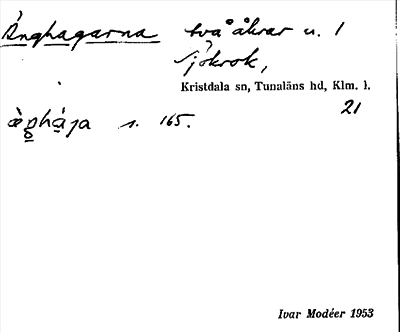 Änghagarna två åkrar u. 1
Sjökrok,
Kristdala sn, Tunaläns hd, Klm. l.
21
s. 165.
Ivar Modéer 1953